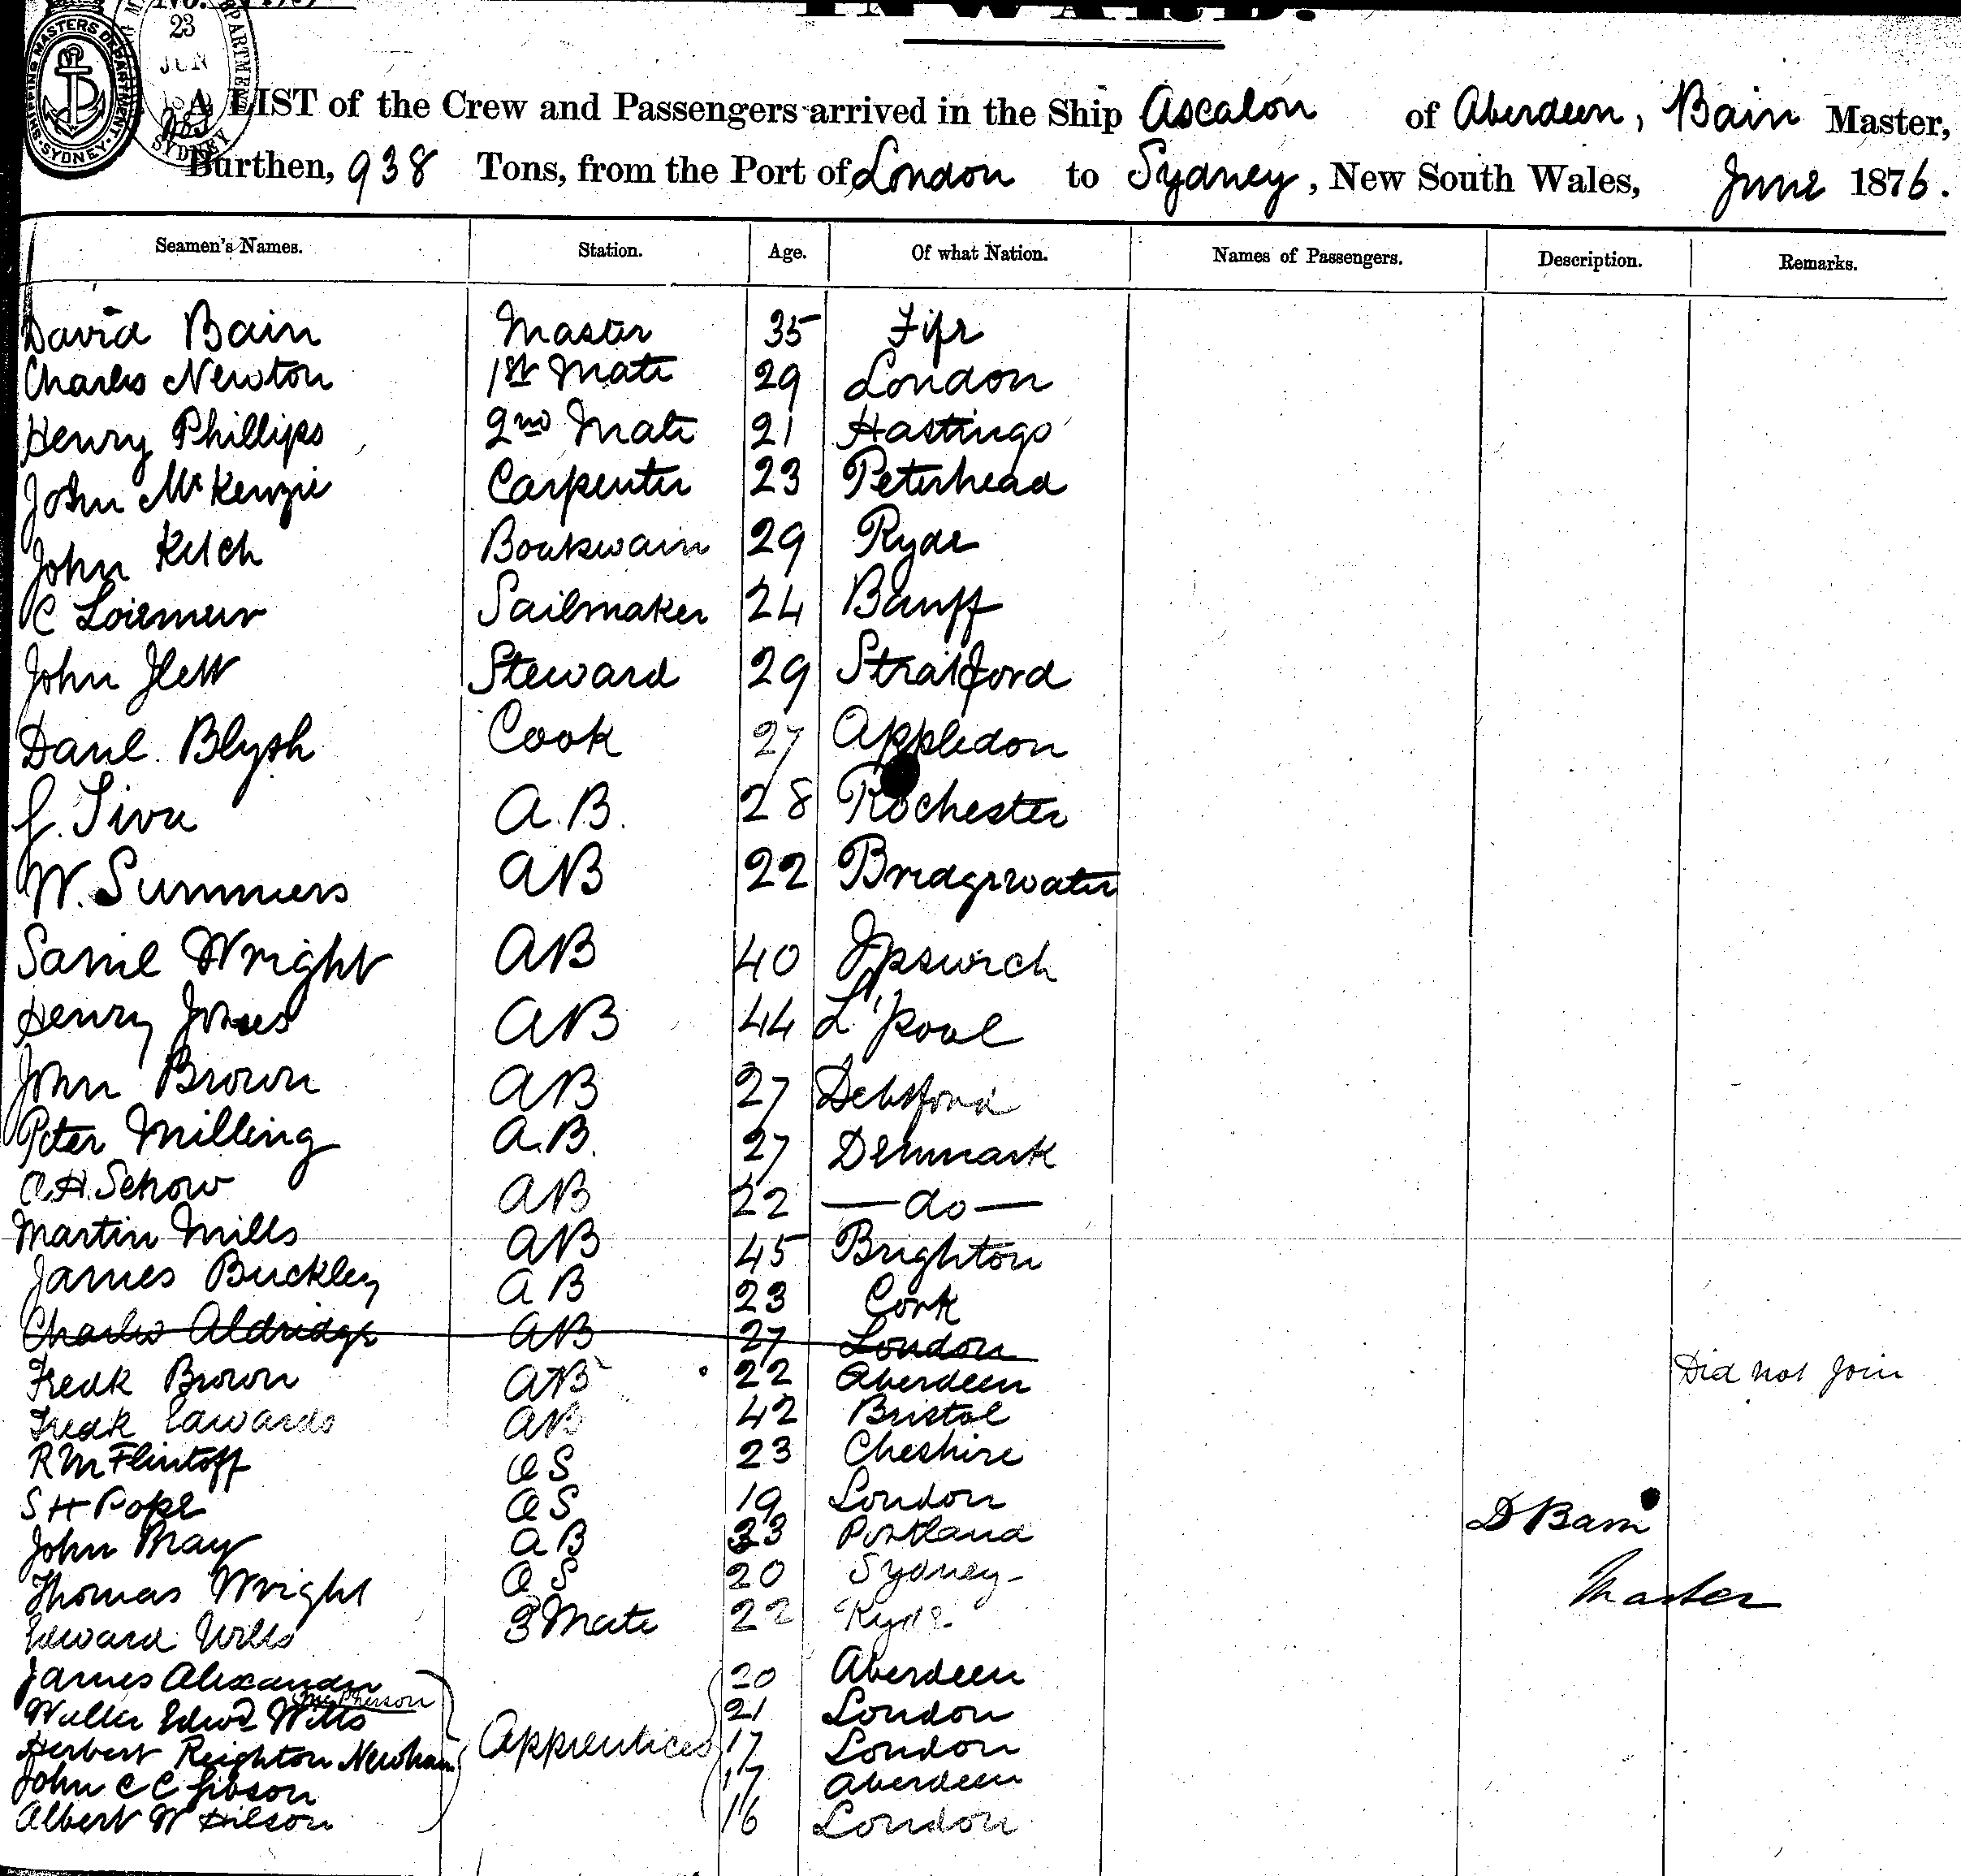 INWARD.
SHIPPING MASTERS DEPARTMENT SYDNEY
23 JUN
SYDNEY
A LIST of the Crew and Passengers arrived in the Ship Ascalon of Aberdeen, Bain Master,
Burthen, 938 Tons, from the Port of London to Sydney, New South Wales, June 1876.
Seamen's Names. Station. Age. Of what Nation. Names of Passengers. Description. Remarks.
David Bain Master 35 Fife
Charles Newton 1st Mate 29 London
Henry Phillips 2nd Mate 21 Hastings
John McKenzie Carpenter 23 Peterhead
John Ketch Boatswain 29 Ryde
Sailmaker 24 Banff
John Flett Steward 29 Stratford
Danl. Blyth Cook 27 Appledon
A.B. 28 Rochester
W. Summers AB 22 Bridgewater
Saml Wright AB 40 Ipswich
Henry Jones AB 44 L'pool
John Brown AB 27 Debtford
Peter Milling A.B. 27 Denmark
Schow AB 22 — do —
Martin Mills AB 45 Brighton
James Buckley AB 23 Cork
Charles Aldridge AB 27 London
Did not Join
Fredk Brown AB 22 Aberdeen
Fredk Edwards AB 42 Bristol
R M Flintoff OS 23 Cheshire
S H Pope OS 19 London
D Bain
John Bray AB 33 Portland
Thomas Wright OS 20 Sydney
Master
Edward Wills 3 Mate 22 Ryde
James Alexander McPherson 20 Aberdeen
Walter Edwd Wills 21 London
Apprentices
Herbert Reighton Newham 17 London
John C C Gibson 17 Aberdeen
Albert W Hilson 16 London